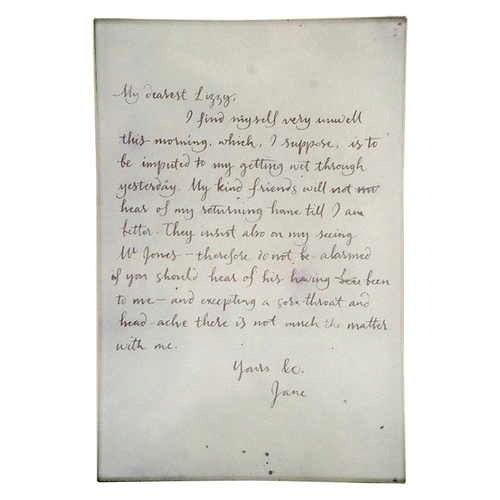 My dearest Lizzy,
I find myself very unwell
this morning, which, I suppose, is to
be imputed to my getting wet through
yesterday. My kind friends will not
hear of my returning home till I am
better. They insist also on my seeing
Mr Jones - therefore do not be alarmed
if you should hear of his having been
to me - and excepting a sore throat and
head-ache there is not much the matter
with me.
Yours &c.
Jane